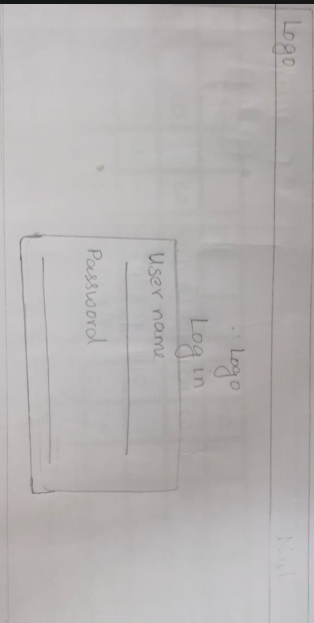 Logo
Logo
Log in
User name
Password